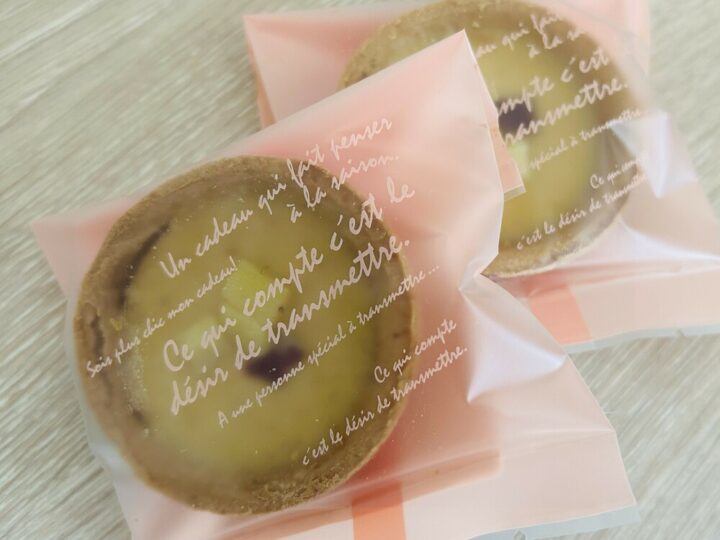 Un cadeau qui fait penser
à la saison.
Sois plus chic mon cadeau!
Ce qui compte c'est le
désir de transmettre.
A une personne spécial à transmettre...
Ce qui compte
c'est le désir de transmettre.
eau qui fait
à la saison.
compte c'est
transmettre.
spécial à transmettre
Ce qui compte
c'est le désir de transmettre.